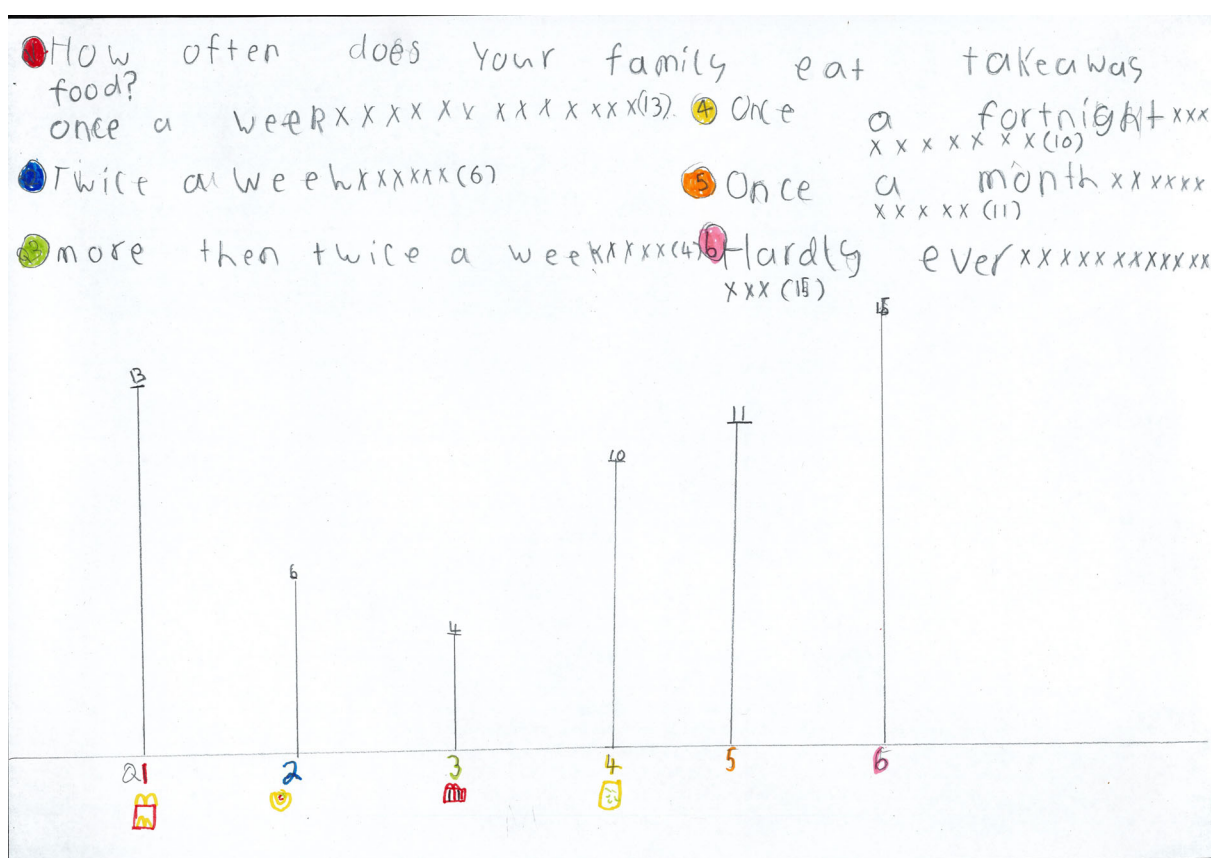 How often does your family eat takeaway
food?
once a week x x x x x x x x x x x x x (13)
4 Once a fortnight x x x
x x x x x x x (10)
Twice a week x x x x x x (6)
5 Once a month x x x x x x
x x x x x (11)
more then twice a week x x x x (4)
6 Hardly ever x x x x x x x x x x x x
x x x (15)
15
13
11
10
6
4
Q1 2 3 4 5 6